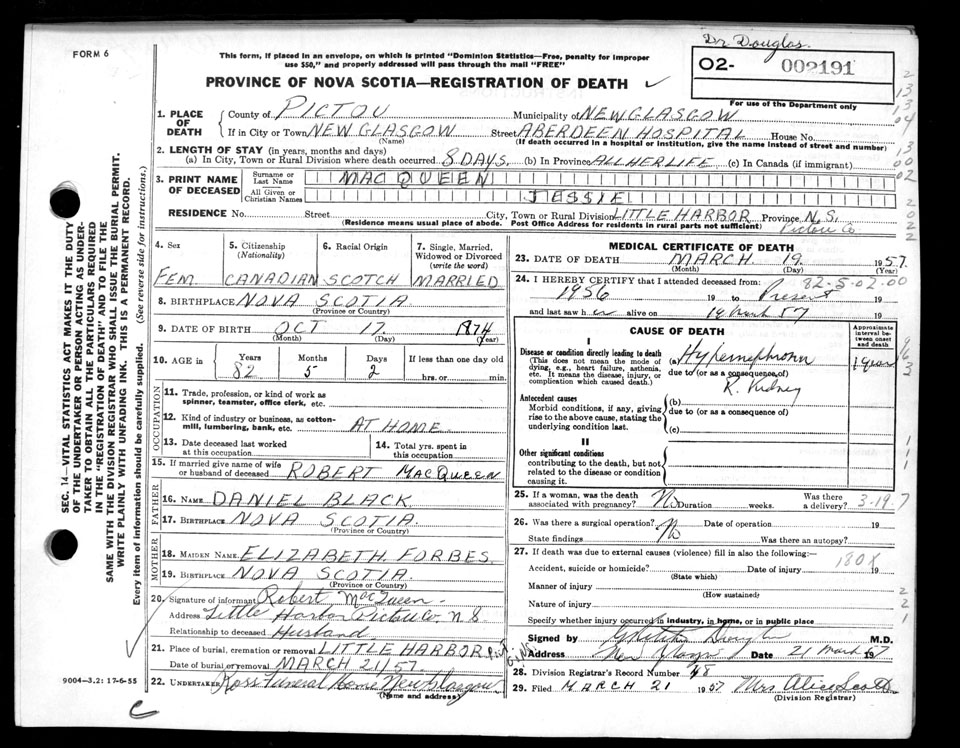 FORM 6
This form, if placed in an envelope, on which is printed "Dominion Statistics—Free, penalty for improper
use $50," and properly addressed will pass through the mail "FREE"
Dr. Douglas
O2- 002191
For use of the Department only
PROVINCE OF NOVA SCOTIA—REGISTRATION OF DEATH
1. PLACE OF DEATH
County of PICTOU Municipality of NEW GLASGOW
If in City or Town NEW GLASGOW Street ABERDEEN HOSPITAL House No.
(Name) (If death occurred in a hospital or institution, give the name instead of street and number)
2. LENGTH OF STAY (in years, months and days)
(a) In City, Town or Rural Division where death occurred 8 DAYS. (b) In Province ALL HER LIFE (c) In Canada (if immigrant)
3. PRINT NAME OF DECEASED
Surname or Last Name MACQUEEN
All Given or Christian Names JESSIE
RESIDENCE No. Street City, Town or Rural Division LITTLE HARBOR Province N.S.
(Residence means usual place of abode. Post Office Address for residents in rural parts not sufficient) Pictou Co
4. Sex FEM
5. Citizenship (Nationality) CANADIAN
6. Racial Origin SCOTCH
7. Single, Married, Widowed or Divorced (write the word) MARRIED
8. BIRTHPLACE NOVA SCOTIA
(Province or Country)
9. DATE OF BIRTH OCT 17 1874
(Month) (Day) (Year)
10. AGE in Years 82 Months 5 Days 2 If less than one day old hrs. or min.
OCCUPATION
11. Trade, profession, or kind of work as spinner, teamster, office clerk, etc.
12. Kind of industry or business, as cotton-mill, lumbering, bank, etc. AT HOME
13. Date deceased last worked at this occupation
14. Total yrs. spent in this occupation
15. If married give name of wife or husband of deceased ROBERT MACQUEEN
FATHER
16. NAME DANIEL BLACK
17. BIRTHPLACE NOVA SCOTIA.
(Province or Country)
MOTHER
18. MAIDEN NAME ELIZABETH FORBES.
19. BIRTHPLACE NOVA SCOTIA.
(Province or Country)
20. Signature of informant Robert MacQueen
Address Little Harbor Pictou Co. N S
Relationship to deceased Husband
21. Place of burial, cremation or removal LITTLE HARBOR
Date of burial or removal MARCH 21/57.
22. UNDERTAKER Ross Funeral Home New Glasgow
(Name and address)
9004—3.2: 17-6-55
MEDICAL CERTIFICATE OF DEATH
23. DATE OF DEATH MARCH 19 1957.
(Month) (Day) (Year)
24. I HEREBY CERTIFY that I attended deceased from: 82-5-02-00
1956 19 to Present 19
and last saw her alive on 19 March 57 19
CAUSE OF DEATH
Approximate interval between onset and death
I
Disease or condition directly leading to death
(This does not mean the mode of dying, e.g., heart failure, asthenia, etc. It means the disease, injury, or complication which caused death.)
(a) Hypernephroma 1 year
due to (or as a consequence of)
R. Kidney
Antecedent causes
Morbid conditions, if any, giving rise to the above cause, stating the underlying condition last.
(b)
due to (or as a consequence of)
(c)
II
Other significant conditions
contributing to the death, but not related to the disease or condition causing it.
25. If a woman, was the death associated with pregnancy? No Duration weeks. Was there a delivery? 3-19.7
26. Was there a surgical operation? No Date of operation 19
State findings Was there an autopsy?
27. If death was due to external causes (violence) fill in also the following:—
180X
Accident, suicide or homicide? Date of injury 19
(State which)
Manner of injury
(How sustained)
Nature of injury
Specify whether injury occurred in industry, in home, or in public place
Signed by M.D.
Address New Glasgow Date 21 March 1957
28. Division Registrar's Record Number 48
29. Filed MARCH 21 1957 Mrs Alice Scott
(Division Registrar)
SEC. 14—VITAL STATISTICS ACT MAKES IT THE DUTY
OF THE UNDERTAKER OR PERSON ACTING AS UNDER-
TAKER TO OBTAIN ALL THE PARTICULARS REQUIRED
IN THE "REGISTRATION OF DEATH" AND TO FILE THE
SAME WITH THE DIVISION REGISTRAR WHO SHALL ISSUE THE BURIAL PERMIT.
WRITE PLAINLY WITH UNFADING INK. THIS IS A PERMANENT RECORD.
Every item of information should be carefully supplied. (See reverse side for instructions.)